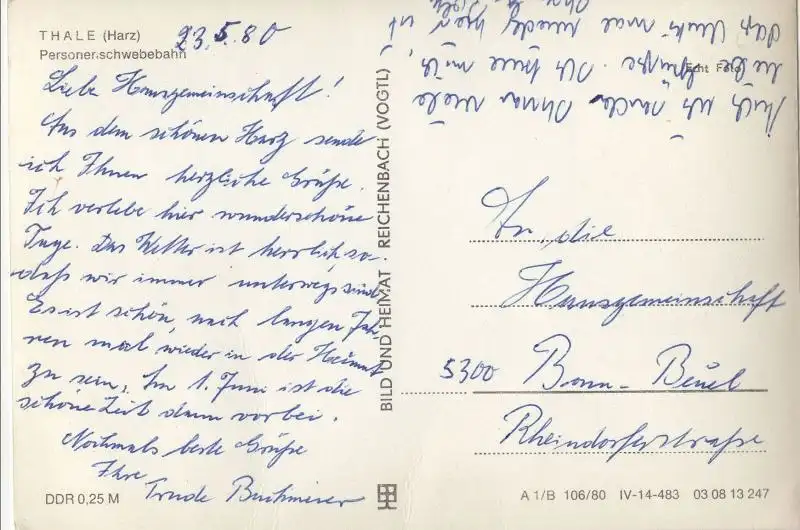 THALE (Harz)
Personenschwebebahn
23.5.80
Liebe Hausgemeinschaft!
Aus dem schönen Harz sende
ich Ihnen herzliche Grüße.
Ich verlebe hier wunderschöne
Tage. Das Wetter ist herrlich so-
daß wir immer unterwegs sind.
Es ist schön, nach langen Jah-
ren mal wieder in der Heimat
zu sein. Im 1. Juni ist die
schöne Zeit dann vorbei.
Nochmals beste Grüße
Ihre
Trude
DDR 0,25 M
BILD UND HEIMAT REICHENBACH (VOGTL)
Auch ich sende Ihnen viele
liebe Grüße. Ich freue mich,
daß Mutti mal wieder hier ist
Echt Foto
An die
Hausgemeinschaft
5300 Bonn-Beuel
Rheindorferstraße
A 1/B 106/80 IV-14-483 03 08 13 247